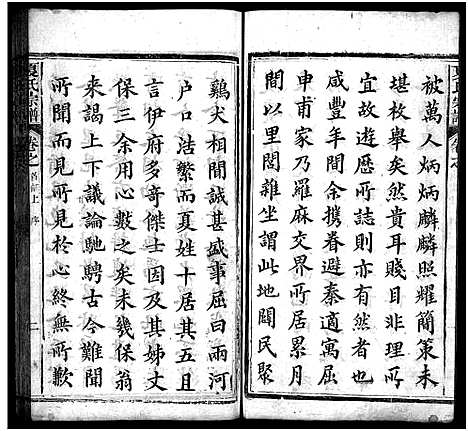 被萬人炳炳麟麟照耀簡策未
堪枚舉然貴耳賤目非理所
宜故遊歷所誌則亦有然者
咸豐年間余攜眷避秦適寓屈
申甫家乃羅麻交界所居累月
間以里閈雜坐謂此地闊民聚
鷄犬相聞誠甚盛事屈曰兩河
户口浩繁而夏姓十居其五且
言伊府多奇傑士因及其姊丈
保三余用心數之矣未幾保翁
来謁上下議論馳騁古今難聞
所聞而見所見於心終無所歉
夏氏宗譜
卷之